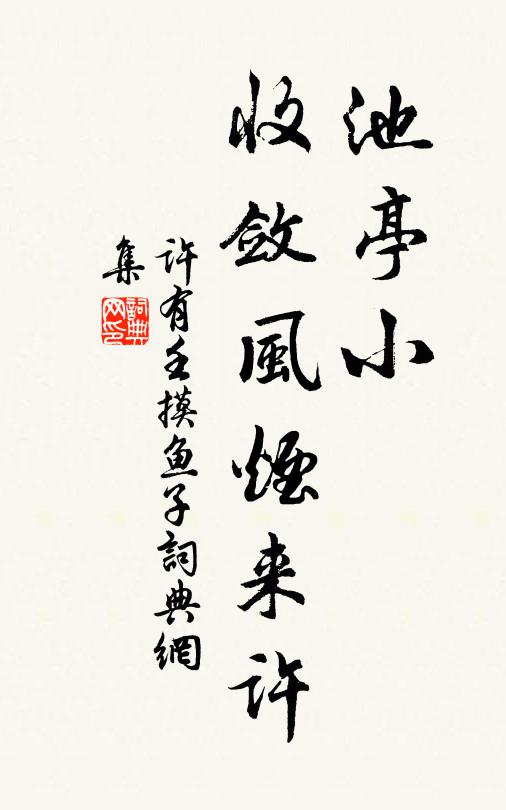 池亭小
收斂風煙来許
許有壬摸魚子詞典網
集
詞典網印